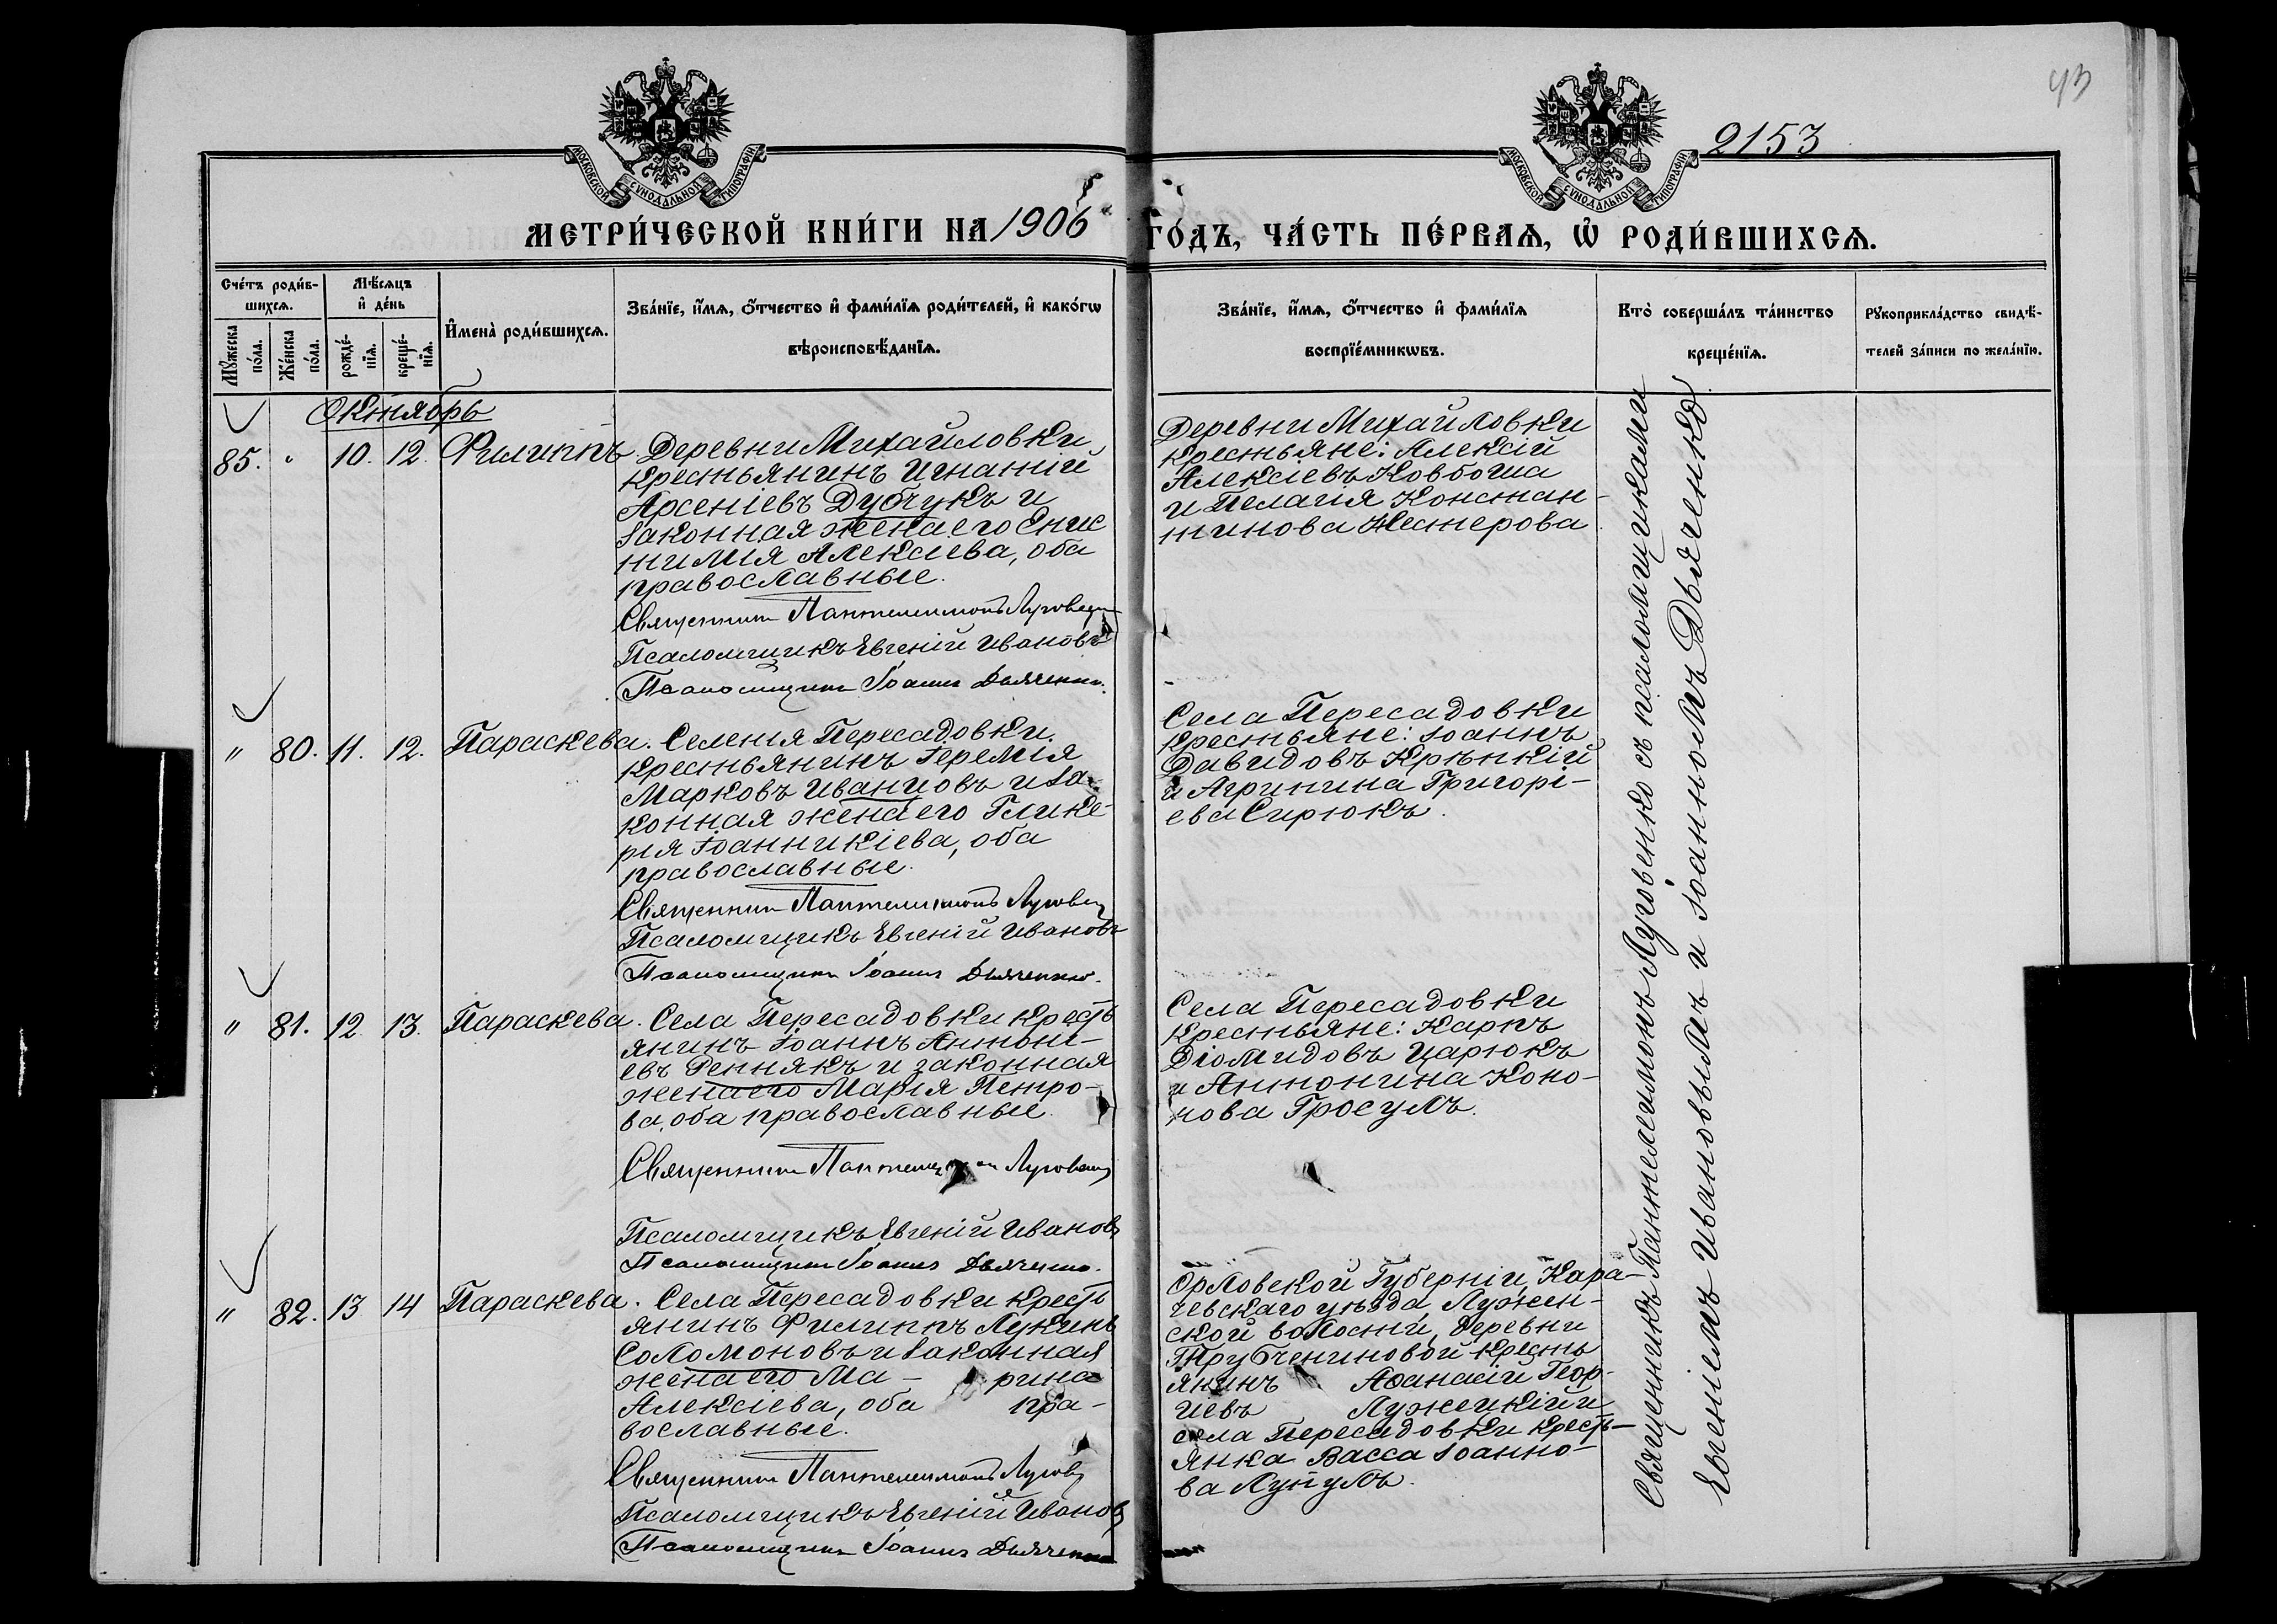 43
2153
МОСКОВСКОЙ СѴНОДАЛЬНОЙ ТИПОГРАФІИ
МОСКОВСКОЙ СѴНОДАЛЬНОЙ ТИПОГРАФІИ
МЕТРИ́ЧЕСКОЙ КНИ́ГИ НА 1906 ГО́ДЪ, ЧА́СТЬ ПЕ́РВАѦ, Ѡ҆ РОДИ́ВШИХСѦ.
Сче́тъ роди́в-
шихсѧ.
Мꙋ́жеска
по́ла.
Же́нска
по́ла.
Мѣ́сѧцъ
и҆ де́нь
рожде́-
нїѧ.
креще́-
нїѧ.
И҆мена̀ роди́вшихсѧ.
Зва́нїе, и҆́мѧ, ѻ҆́тчество и҆ фами́лїѧ роди́телей, и҆ како́гѡ
вѣроисповѣ́данїѧ.
Зва́нїе, и҆́мѧ, ѻ҆́тчество и҆ фами́лїѧ
воспрїе́мникѡвъ.
Кто̀ соверша́лъ та́инство
креще́нїѧ.
Рꙋкоприкла́дство свидѣ́-
телей за́писи по жела́нїю.
Октябрь
85. " 10. 12. Филиппъ.
Деревни Михайловки
крестьянинъ Игнатій
Арсеніевъ Дубчукъ и
законная жена его Епис
тимія Алексіева, оба
православные.
Священникъ Пантелеимонъ Луговенко
Псаломщикъ Евгеній Ивановъ
Псаломщикъ Іоаннъ Дьяченко.
Деревни Михайловки
крестьяне: Алексій
Алексіевъ Ковбоша
и Пелагія Констан-
тинова Нестерова
" 80. 11. 12. Параскева.
Селенія Пересадовки
крестьянинъ Іеремія
Марковъ Иванцовъ и за-
конная жена его Глике-
рія Іоанникіева, оба
православные.
Священникъ Пантелеимонъ Луговенко
Псаломщикъ Евгеній Ивановъ
Псаломщикъ Іоаннъ Дьяченко.
Села Пересадовки
крестьяне: Іоаннъ
Давидовъ Крѣпкій
и Агрипина Григорі-
ева Сирюкъ.
" 81. 12. 13. Параскева.
Села Пересадовки кресть
янинъ Іоаннъ Антоні-
евъ Репнякъ и законная
жена его Марія Петро-
ва, оба православные.
Священникъ Пантелеимонъ Луговенко
Псаломщикъ Евгеній Ивановъ
Псаломщикъ Іоаннъ Дьяченко.
Села Пересадовки
крестьяне: Карпъ
Діомидовъ Царюкъ
и Антонина Коно-
нова Гросулъ.
" 82. 13 14 Параскева.
Села Пересадовки кресть
янинъ Филиппъ Лукинъ
Соломоновъ и законная
жена его Ма- рина
Алексіева, оба пра-
вославные.
Священникъ Пантелеимонъ Луговенко
Псаломщикъ Евгеній Ивановъ
Псаломщикъ Іоаннъ Дьяченко
Орловской Губерніи, Кара-
чевскаго уѣзда, Лужен-
ской волости, деревни
Трубчениновой кресть
янинъ Аѳанасій Геор-
гіевъ Лужецкій и
села Пересадовки кресть-
янка Васса Іоанно-
ва Лупулъ.
Священникъ Пантелеимонъ Луговенко съ псаломщиками
Евгеніемъ Ивановымъ и Іоанномъ Дьяченко